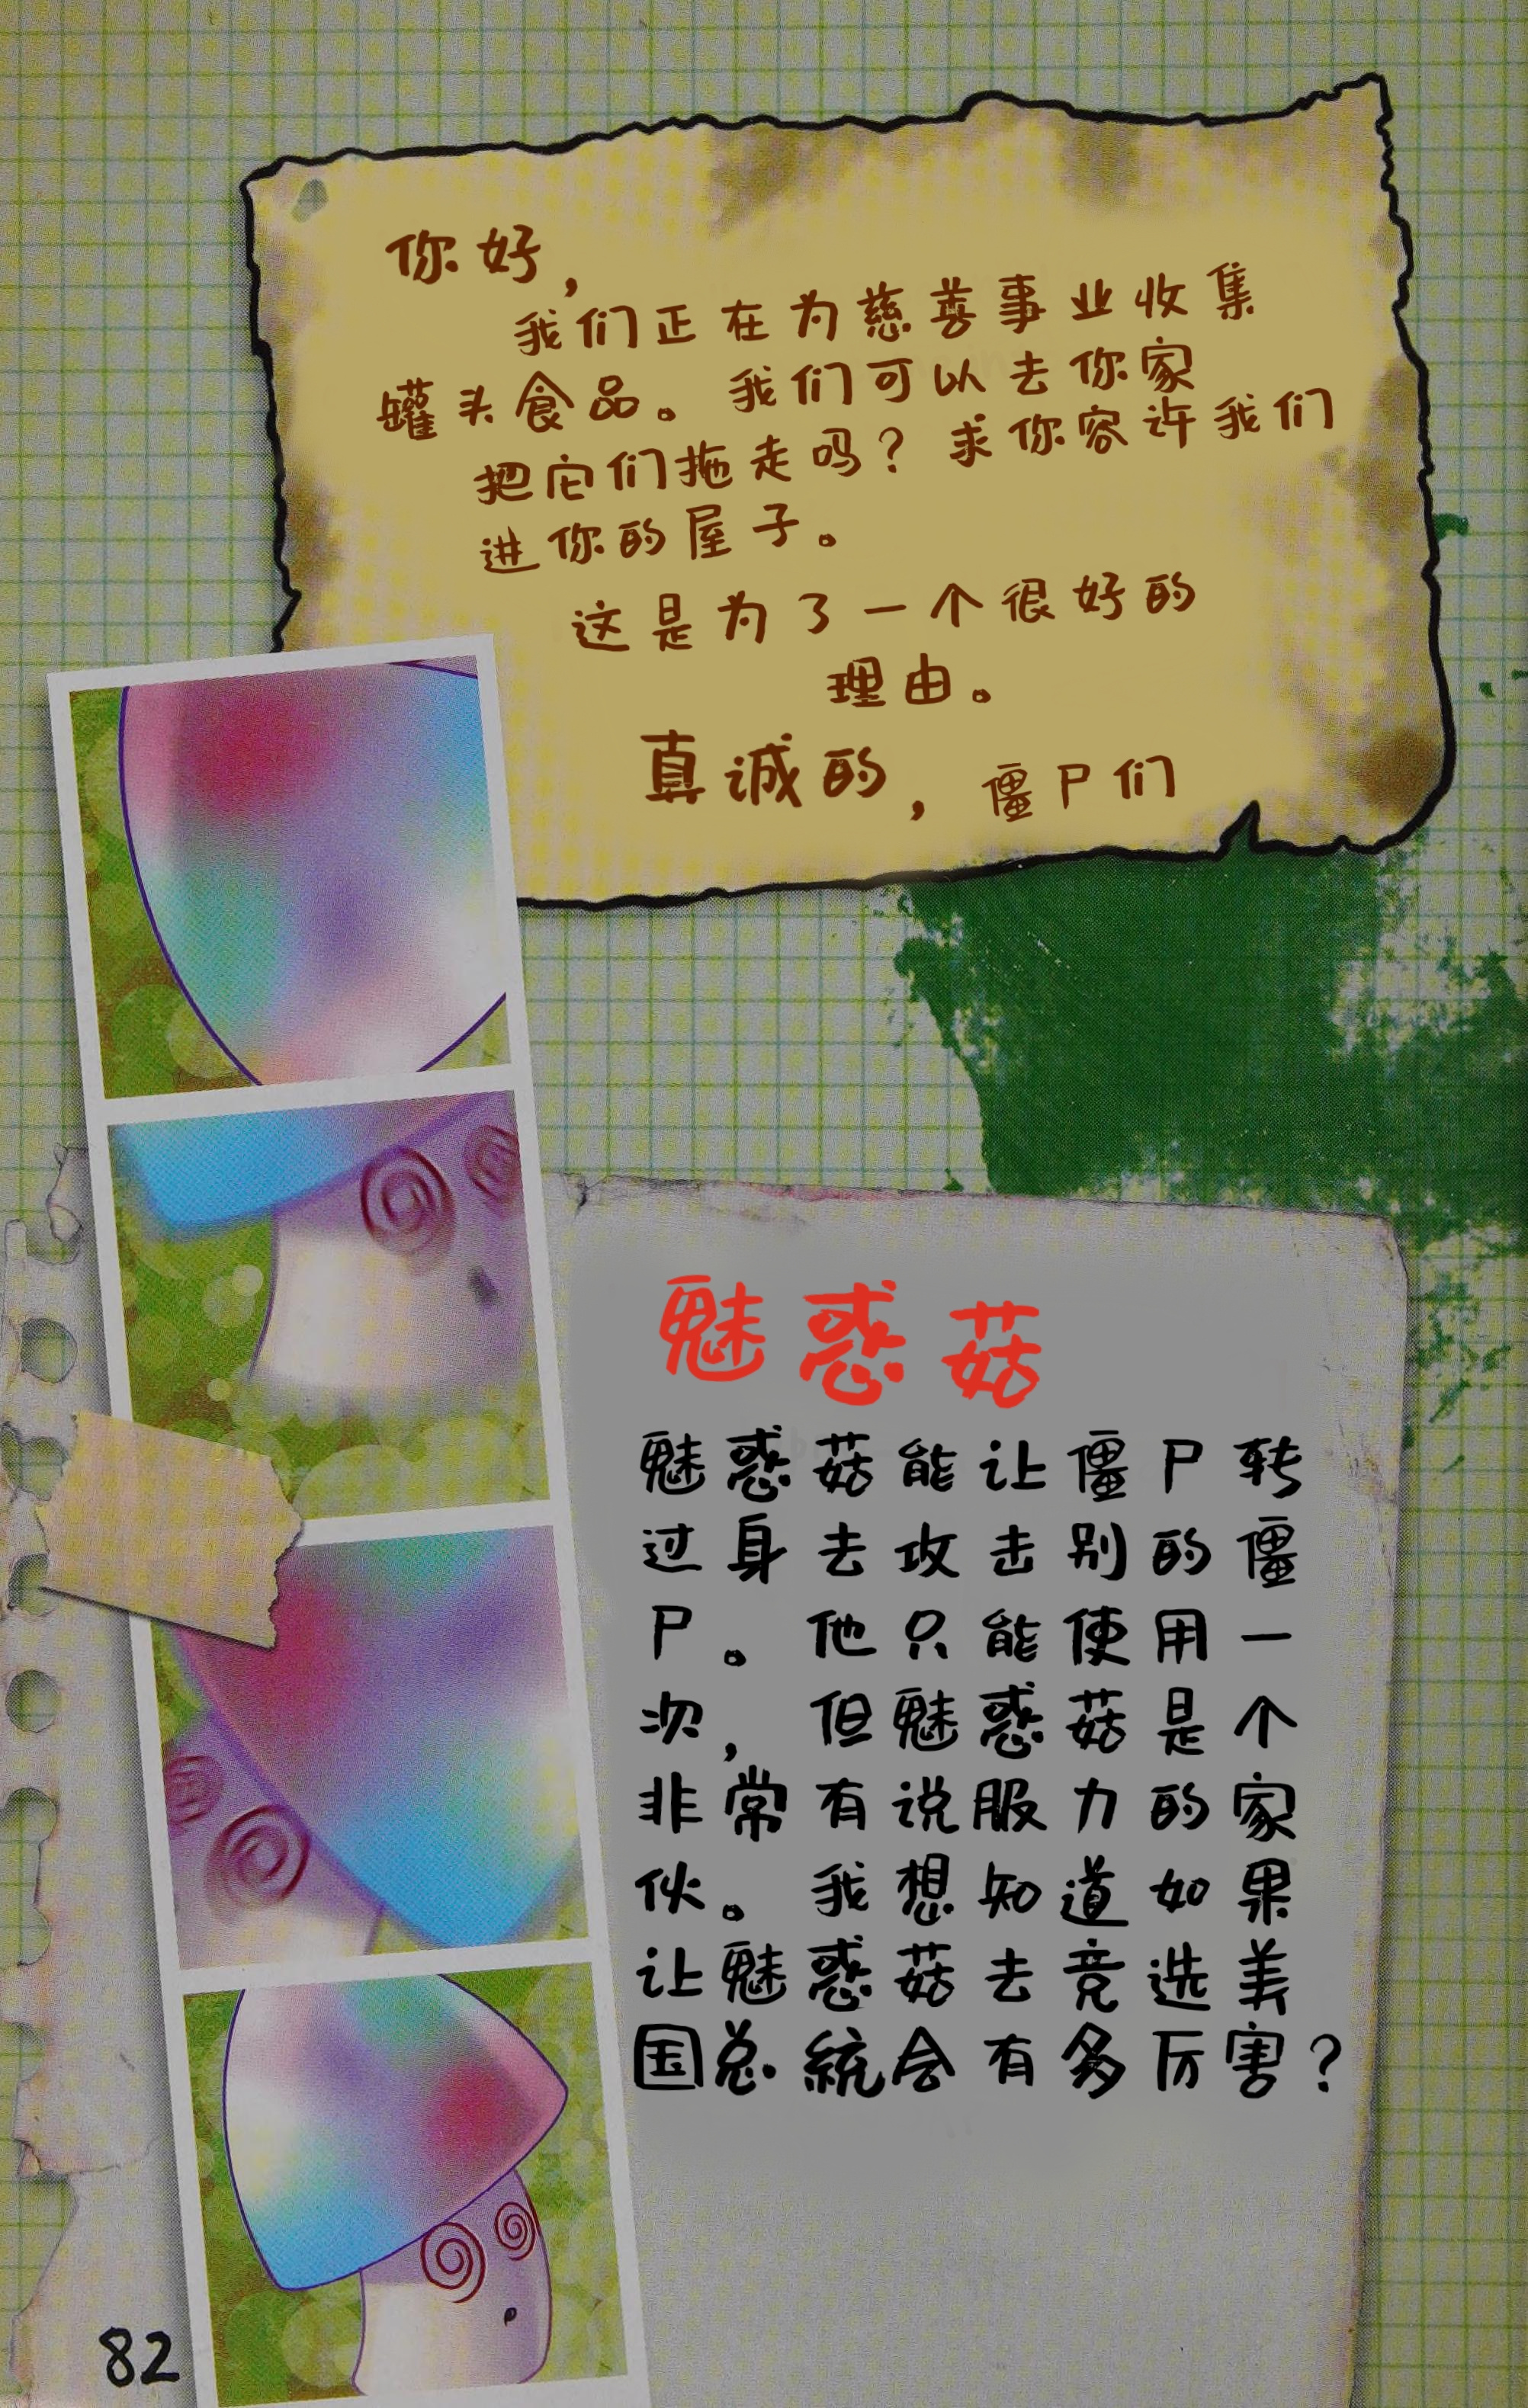 你好，
我们正在为慈善事业收集
罐头食品。我们可以去你家
把它们拖走吗？求你容许我们
进你的屋子。
这是为了一个很好的
理由。
真诚的，僵尸们
魅惑菇
魅惑菇能让僵尸转
过身去攻击别的僵
尸。他只能使用一
次，但魅惑菇是个
非常有说服力的家
伙。我想知道如果
让魅惑菇去竞选美
国总統会有多厉害？
82